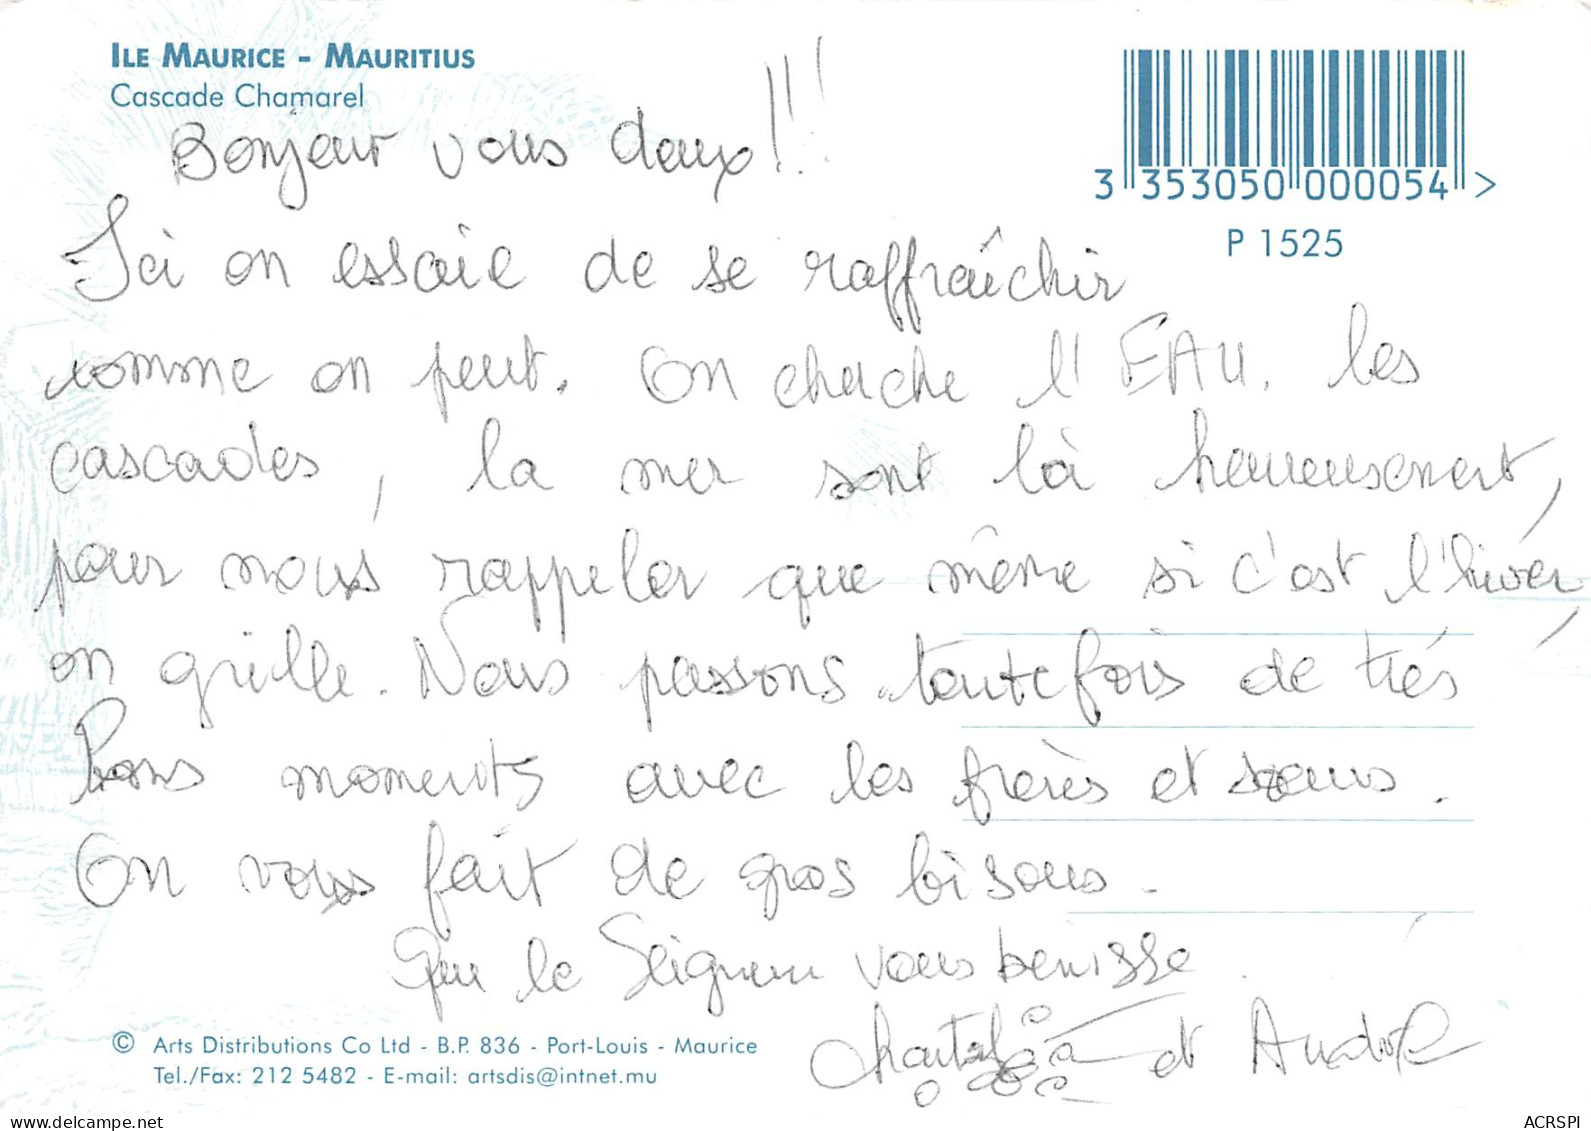 ILE MAURICE - MAURITIUS
Cascade Chamarel
3 353050 000054 >
P 1525
Bonjour vous deux!!!
Ici on essaie de se raffraîchir
comme on peut. On cherche l'EAU. les
cascades, la mer sont là heureusement,
pour nous rappeler que même si c'est l'hiver,
on grille. Nous passons toutefois de très
bons moments avec les frères et sœurs.
On vous fait de gros bisous.
Que le Seigneur vous bénisse.
Chantal et
© Arts Distributions Co Ltd - B.P. 836 - Port-Louis - Maurice
Tel./Fax: 212 5482 - E-mail: artsdis@intnet.mu
ACRSPI
delcampe.net